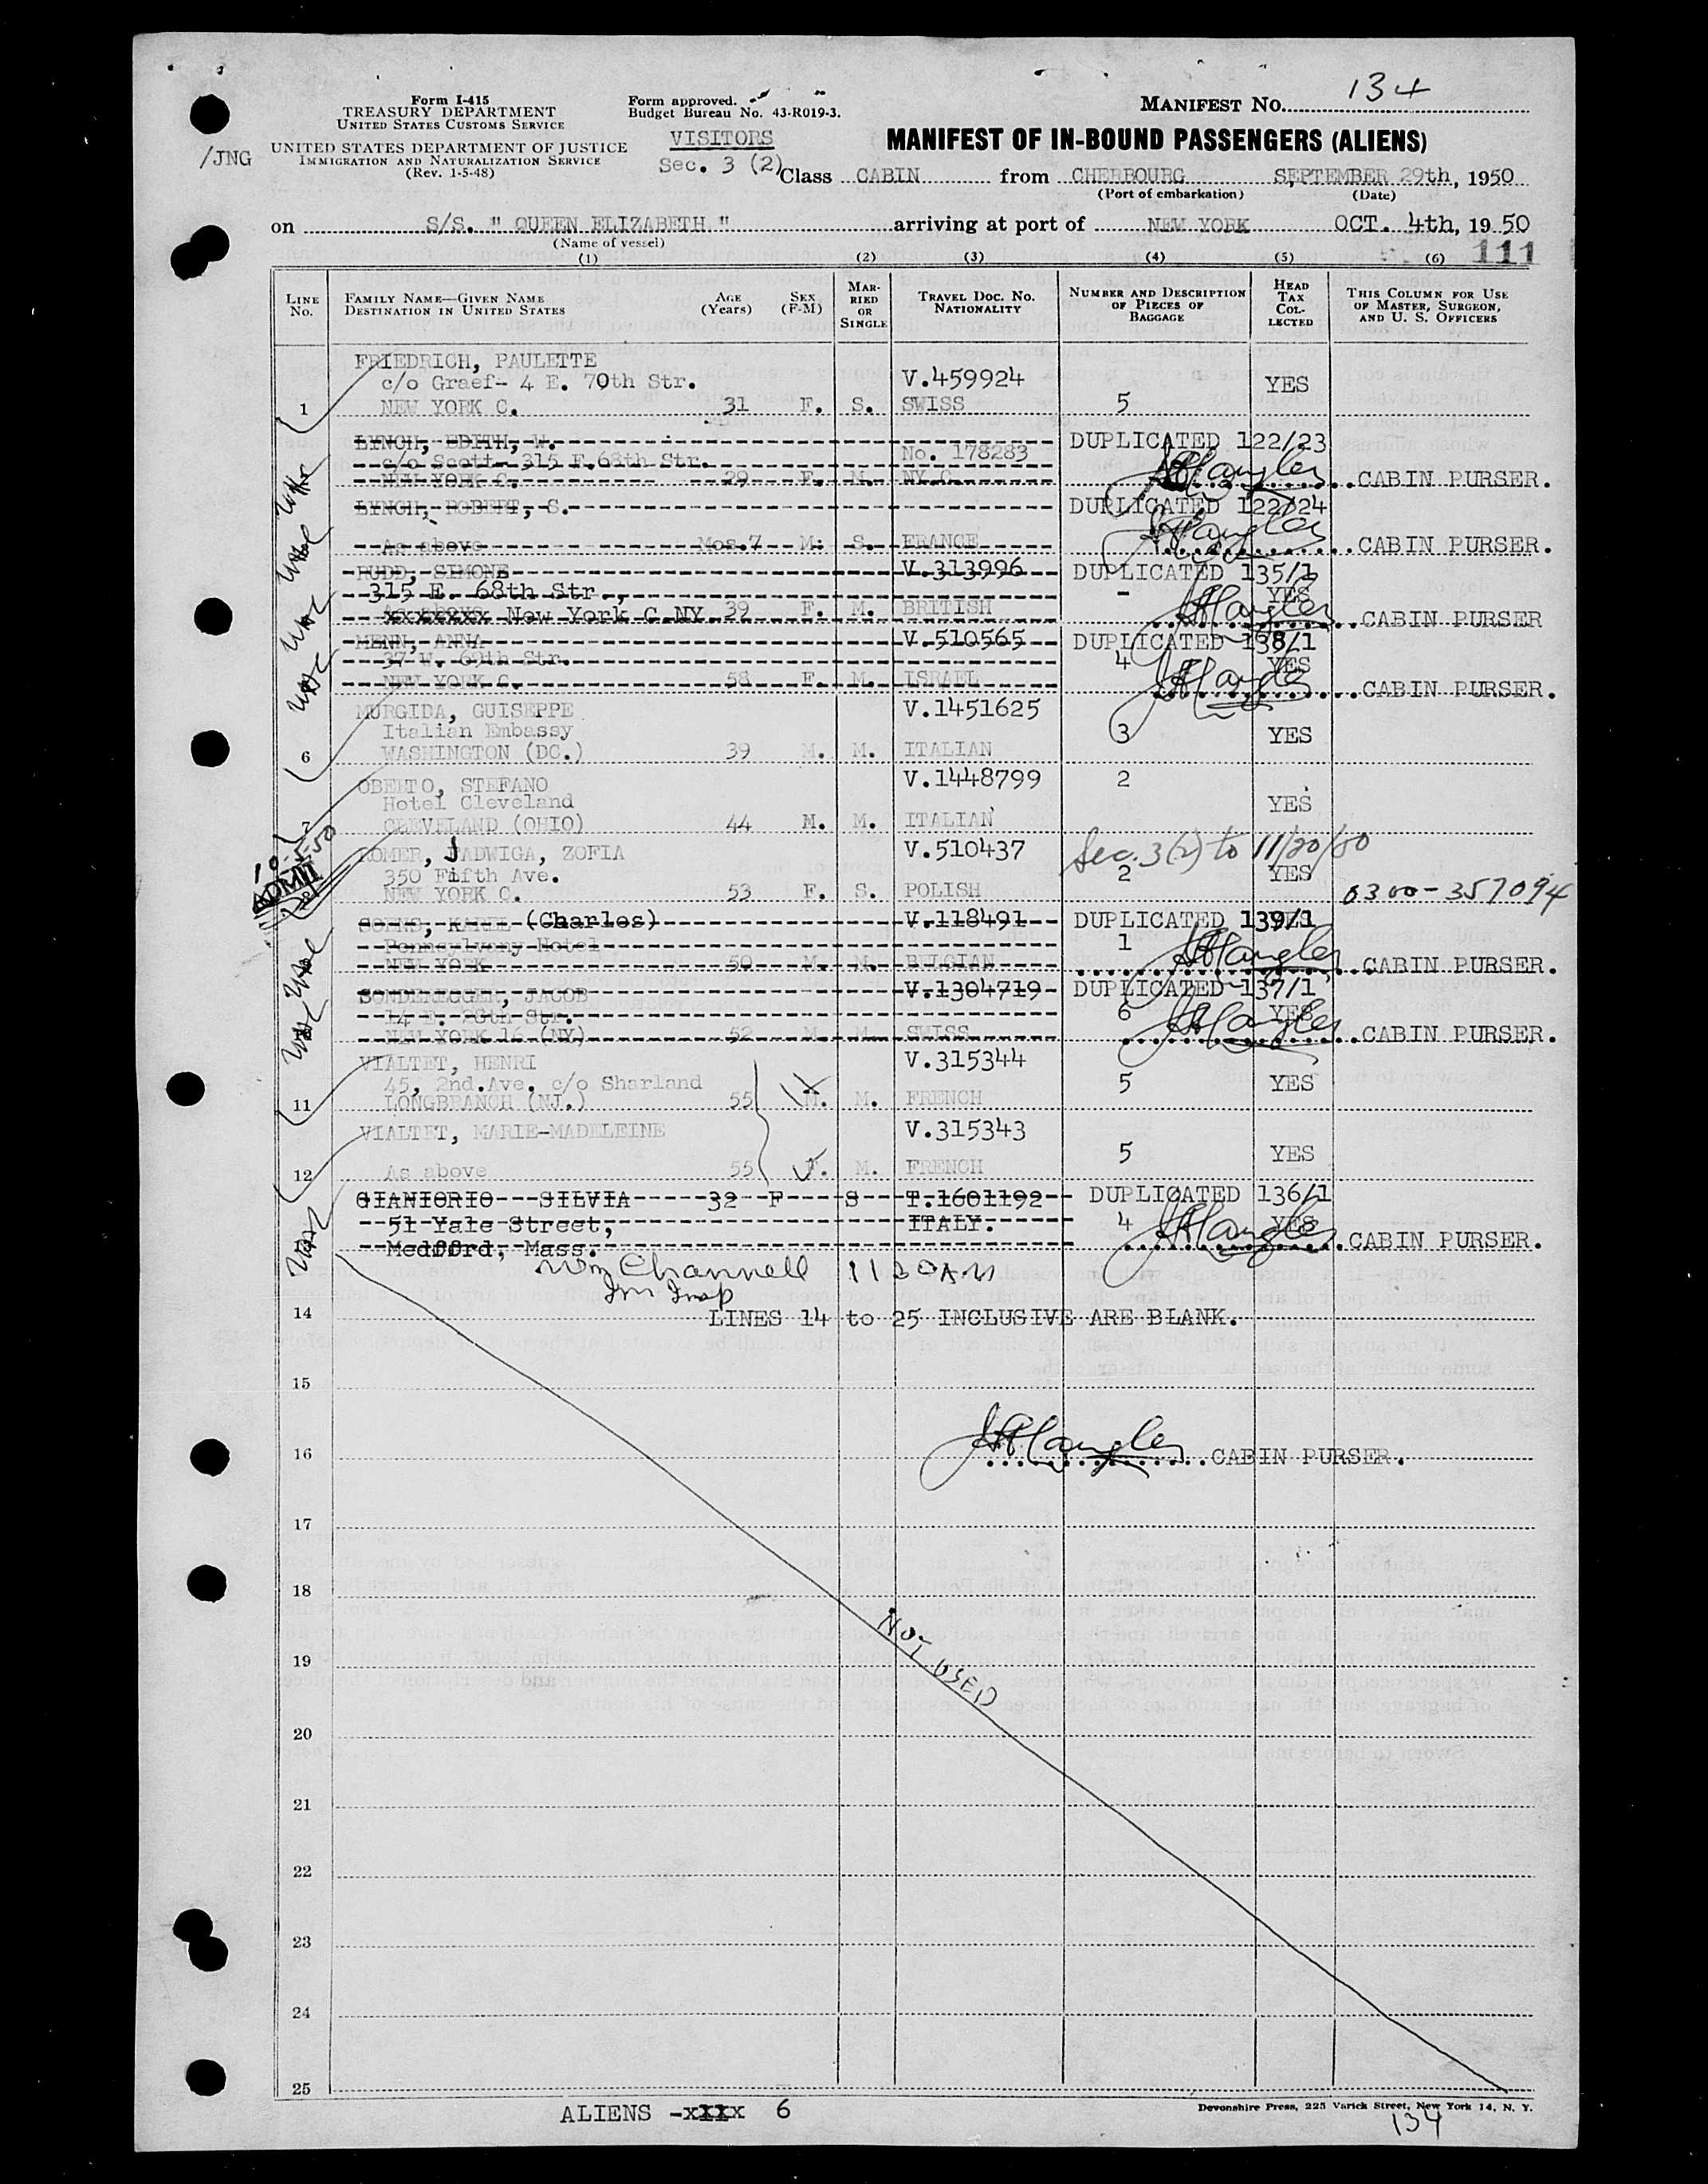 Form I-415
TREASURY DEPARTMENT
UNITED STATES CUSTOMS SERVICE
/JNG
UNITED STATES DEPARTMENT OF JUSTICE
IMMIGRATION AND NATURALIZATION SERVICE
(Rev. 1-5-48)
Form approved.
Budget Bureau No. 43-R019-3.
VISITORS
Sec. 3 (2)
MANIFEST NO. 134
MANIFEST OF IN-BOUND PASSENGERS (ALIENS)
Class CABIN from CHERBOURG SEPTEMBER 29th, 1950
(Port of embarkation) (Date)
on S/S. " QUEEN ELIZABETH " arriving at port of NEW YORK OCT. 4th, 19 50
(Name of vessel)
111
(1) (2) (3) (4) (5) (6)
LINE NO.
FAMILY NAME—GIVEN NAME
DESTINATION IN UNITED STATES
AGE (Years)
SEX (F-M)
MARRIED OR SINGLE
TRAVEL DOC. NO.
NATIONALITY
NUMBER AND DESCRIPTION OF PIECES OF BAGGAGE
HEAD TAX COLLECTED
THIS COLUMN FOR USE OF MASTER, SURGEON, AND U. S. OFFICERS
FRIEDRICH, PAULETTE
c/o Graef- 4 E. 70th Str. V.459924 YES
1 NEW YORK C. 31 F. S. SWISS 5
LYNCH, EDITH, W. DUPLICATED 122/23
c/o Scott- 315 E.68th Str. No. 178283
NEW YORK C. 29 F. M. NY C. CABIN PURSER.
LYNCH, ROBERT, S. DUPLICATED 122/24
As above Mos.7 M. S. FRANCE CABIN PURSER.
RUDD, SIMONE V.313996 DUPLICATED 135/1
315 E. 68th Str., - YES
xxxxxxx New York C NY 39 F. M. BRITISH CABIN PURSER
MENN, ANNA V.510565 DUPLICATED 138/1
37 W. 69th Str. 4 YES
NEW YORK C. 58 F. M. ISRAEL CABIN PURSER.
MURGIDA, GUISEPPE V.1451625
Italian Embassy 3 YES
6 WASHINGTON (DC.) 39 M. M. ITALIAN
OBERTO, STEFANO V.1448799 2
Hotel Cleveland YES
7 CLEVELAND (OHIO) 44 M. M. ITALIAN
10-5-50
ADMIT
ROMER, JADWIGA, ZOFIA V.510437 Sec. 3(2) to 11/20/50
350 Fifth Ave. 2 YES
NEW YORK C. 53 F. S. POLISH 0300-357094
SOENS, KAREL (Charles) V.118491 DUPLICATED 139/1
Pennsylvony Hotel 1
NEW YORK 50 M. M. BELGIAN CABIN PURSER.
SONDEREGGER, JACOB V.1304719 DUPLICATED 137/1
14 E. 28th Str. 6 YES
NEW YORK 16 (NY) 52 M M SWISS CABIN PURSER.
VIALTET, HENRI V.315344
45, 2nd.Ave. c/o Sharland 5 YES
11 LONGBRANCH (NJ.) 55 M. M. FRENCH
VIALTET, MARIE-MADELEINE V.315343
5 YES
12 As above 55 F. M. FRENCH
GIANIORIO SILVIA 32 F S T.1601192 DUPLICATED 136/1
51 Yale Street, ITALY. 4 YES
Medford, Mass. CABIN PURSER.
Wm Channell 1130 AM
Im Insp
14 LINES 14 to 25 INCLUSIVE ARE BLANK.
15
16 CABIN PURSER.
17
18
NOT USED
19
20
21
22
23
24
25
ALIENS -xIIx 6
Devonshire Press, 225 Varick Street, New York 14, N. Y.
134